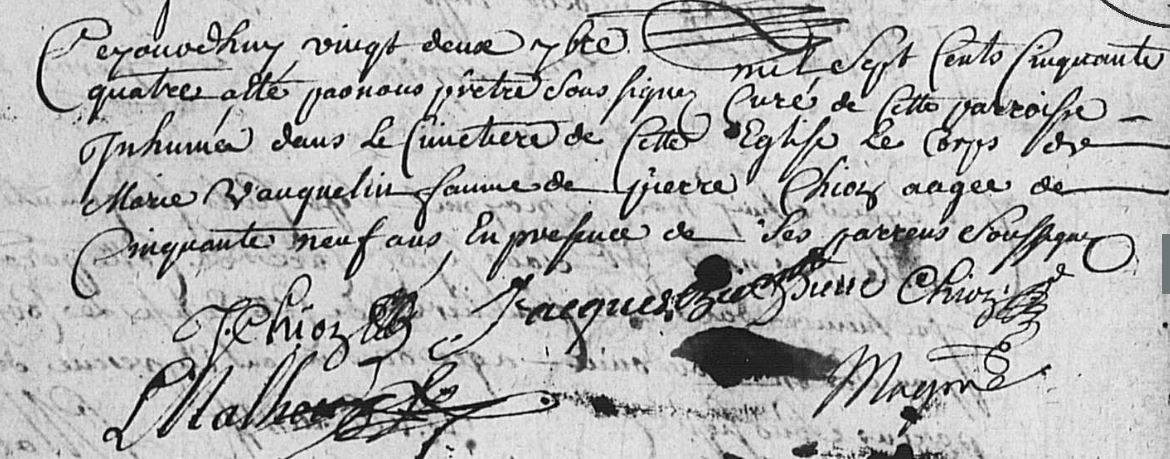 Cejourdhuy vingt deux 7bre mil sept Cents Cinquante
quatre atté par nous prêtre sous signez Curé de Cette parroisse
Inhumée dans Le Cimetiere de Cette Eglise Le Corps de
Marie Vauquelin famme de pierre Chion aagee de
Cinquante neuf ans, En presence de Ses parrens soussignez
J. Chion Jacques pierre Chion